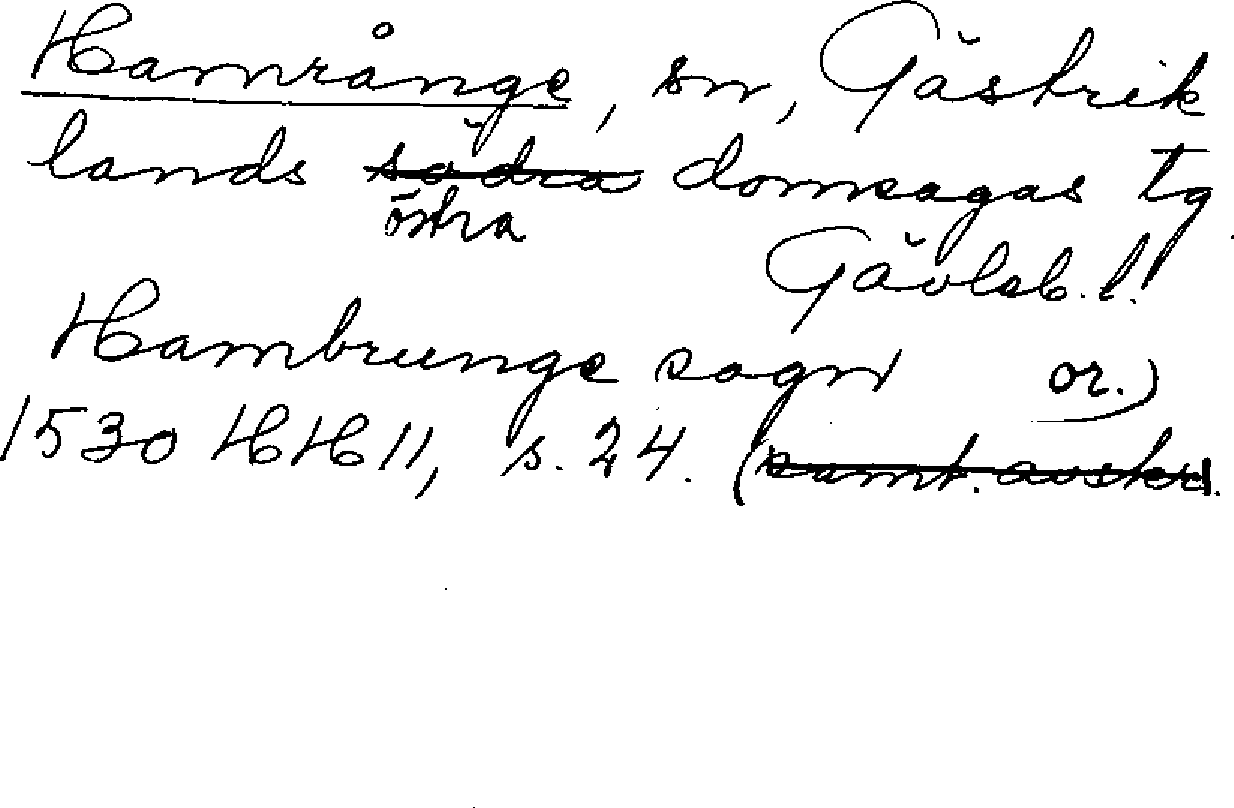 Hamrånge, sn, Gästrik
lands södra domsagas tg
östra
Gävleb. l.
Hambrunge sogn or.)
1530 HH 11, s. 24. (samt. avskr.